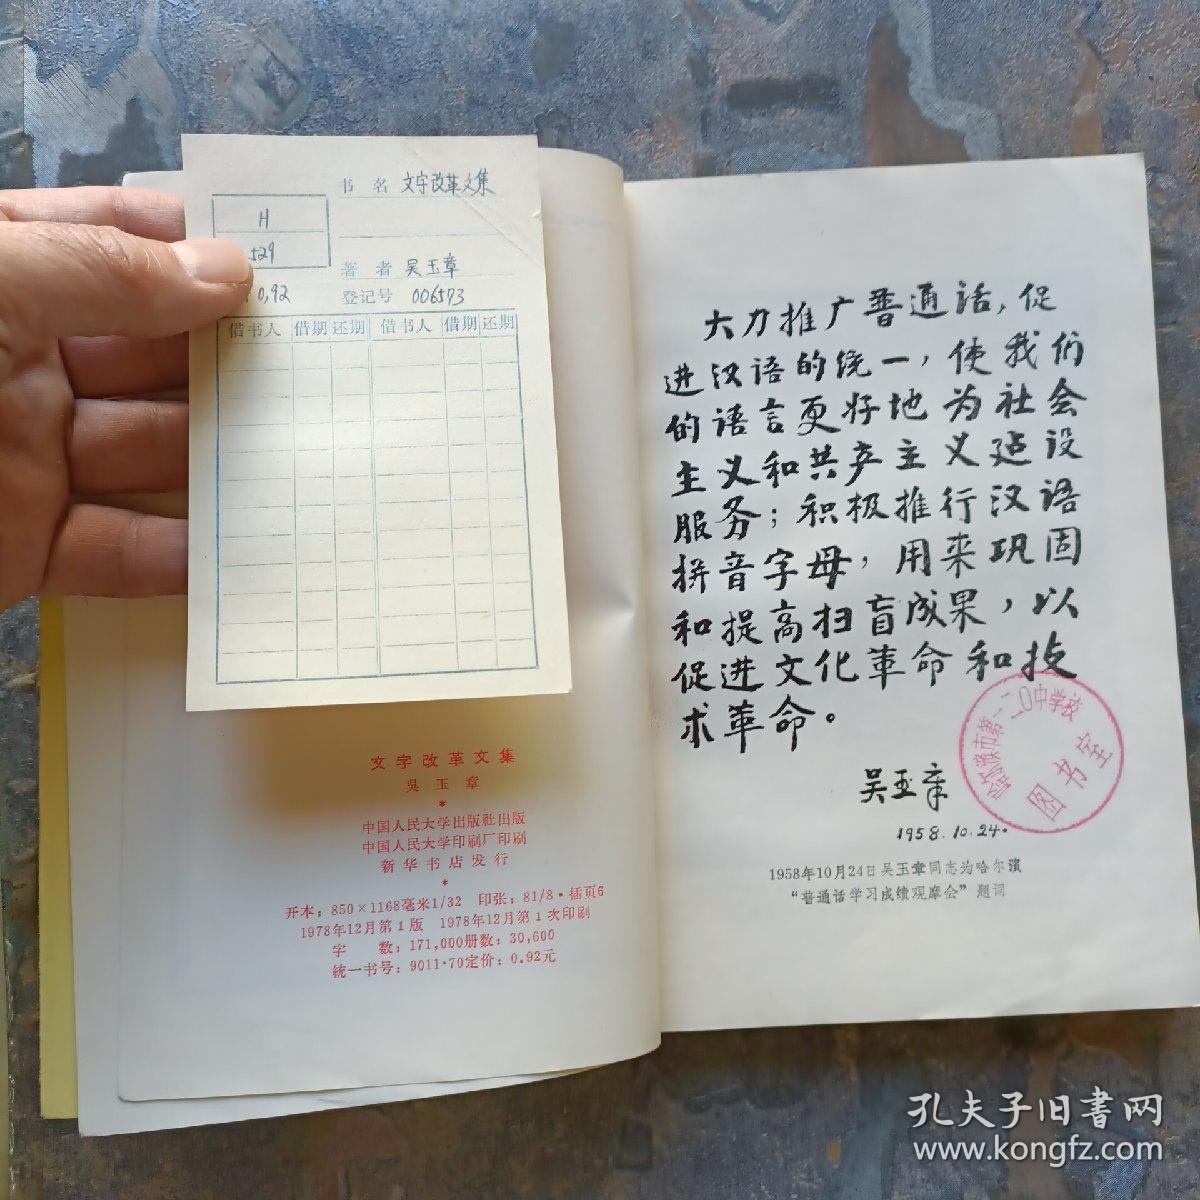 书 名 文字改革文集
H
529
著 者 吴玉章
0.92 登记号 006573
借书人 借期 还期 借书人 借期 还期
文字改革文集
吳玉章
*
中国人民大学出版社出版
中国人民大学印刷厂印刷
新华书店发行
*
开本：850×1168毫米1/32 印张：81/8·插页6
1978年12月第1版 1978年12月第1次印刷
字 数：171,000册数：30,600
统一书号：9011·70定价：0.92元
大力推广普通话，促
进汉语的统一，使我们
的语言更好地为社会
主义和共产主义建设
服务；积极推行汉语
拼音字母，用来巩固
和提高扫盲成果，以
促进文化革命和技
术革命。
吴玉章
1958.10.24.
哈尔滨市第一二〇中学校
图书室
1958年10月24日吴玉章同志为哈尔滨
“普通话学习成绩观摩会”题词
孔夫子旧书网
www.kongfz.com